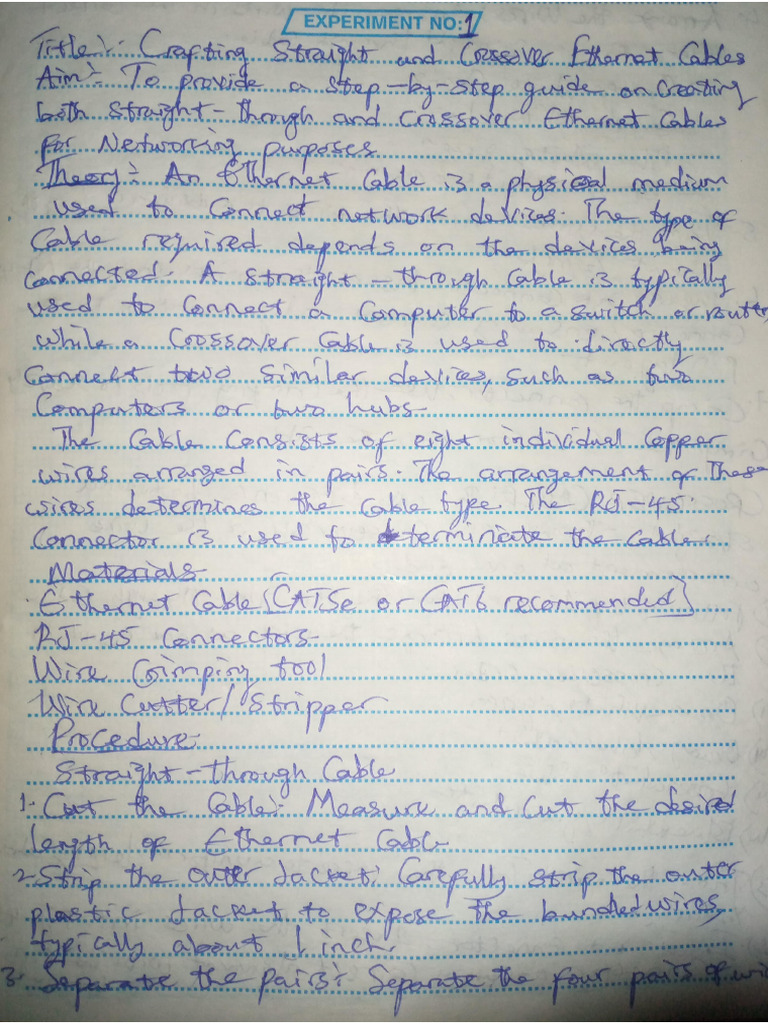 EXPERIMENT NO: 1
Title:- Crafting Straight and Crossover Ethernet Cables
Aim:- To provide a step-by-step guide on Creating
both straight-through and crossover Ethernet Cables
for Networking purposes
Theory:- An Ethernet Cable is a physical medium
used to Connect network devices. The type of
Cable required depends on the devices being
Connected. A straight-through Cable is typically
used to Connect a Computer to a switch or router
while a Crossover Cable is used to directly
Connect two similar devices, such as two
Computers or two hubs.
The Cable Consists of eight individual Copper
wires arranged in pairs. The arrangement of these
wires determines the cable type. The RJ-45
Connector is used to terminate the cable.
Materials
Ethernet Cable (CAT5e or CAT6 recommended)
RJ-45 Connectors
Wire Crimping tool
Wire Cutter/Stripper
Procedure:
Straight-through Cable
1. Cut the Cable: Measure and Cut the desired
length of Ethernet Cable
2. Strip the outer Jacket: Carefully strip the outer
plastic Jacket to expose the bunded wires,
typically about 1 inch.
3. Separate the pairs: Separate the four pairs of